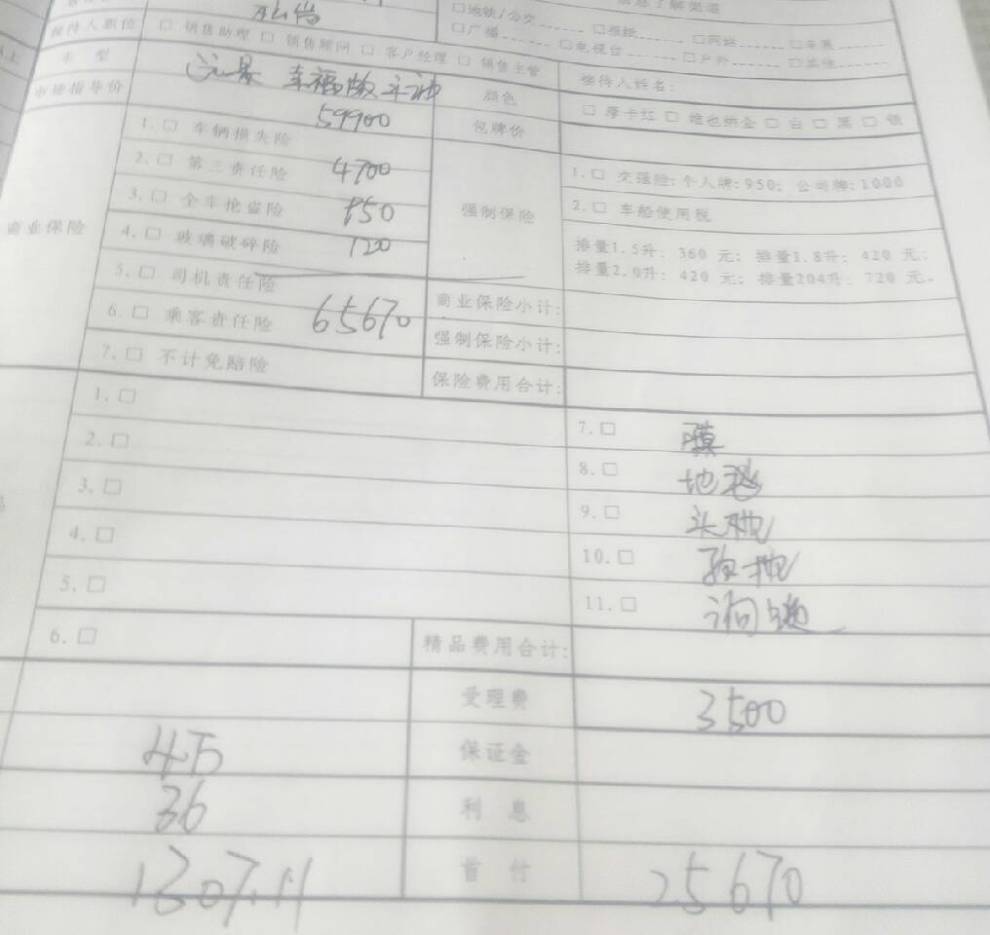 □地铁/公交 □报纸 □网络 □车展
□广播 □电视台 □户外 □其他
接待人职位 □ 销售助理 □ 销售顾问 □ 客户经理 □ 销售主管 接待人姓名:
车 型 远景 幸福版 颜色 □ 摩卡红 □ 维也纳金 □ 白 □ 黑 □ 银
市场指导价 59900 包牌价
商业保险
1.□ 车辆损失险
2.□ 第三责任险 4700
3.□ 全车抢盗险 850
4.□ 玻璃破碎险 120
5.□ 司机责任险
6.□ 乘客责任险 65670
7.□ 不计免赔险
强制保险
1.□ 交强险:个人牌:950; 公司牌:1000
2.□ 车船使用税
排量1.5升: 360 元; 排量1.8升: 420 元;
排量2.0升: 420 元; 排量204升: 720 元。
商业保险小计:
强制保险小计:
保险费用合计:
1.□
2.□
3.□
4.□
5.□
6.□
7.□ 膜
8.□ 地毯
9.□ 头枕
10.□
11.□
精品费用合计:
受理费 3500
4万 保证金
36 利 息
1307.11 首 付 25670